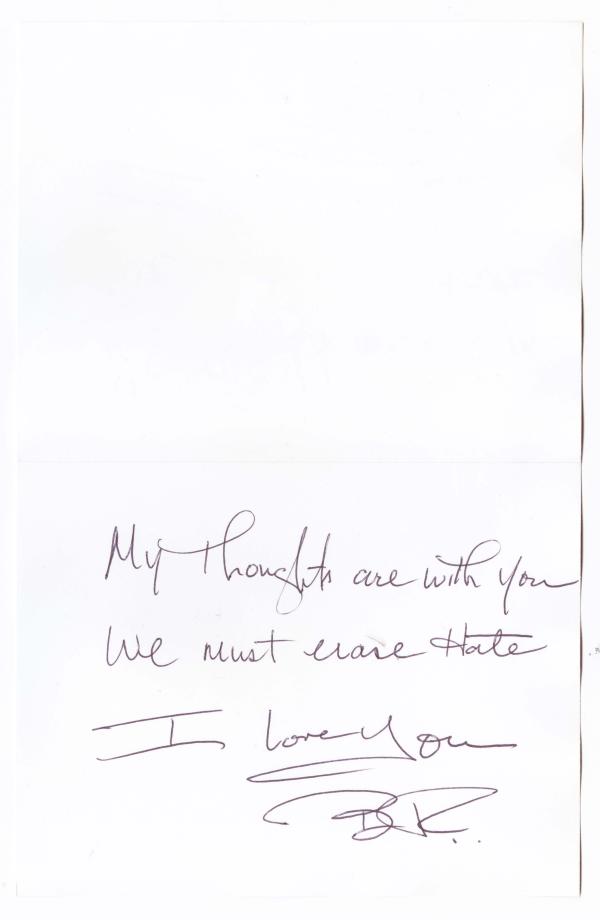 My Thoughts are with You
We must erase Hate
I Love You
BK.